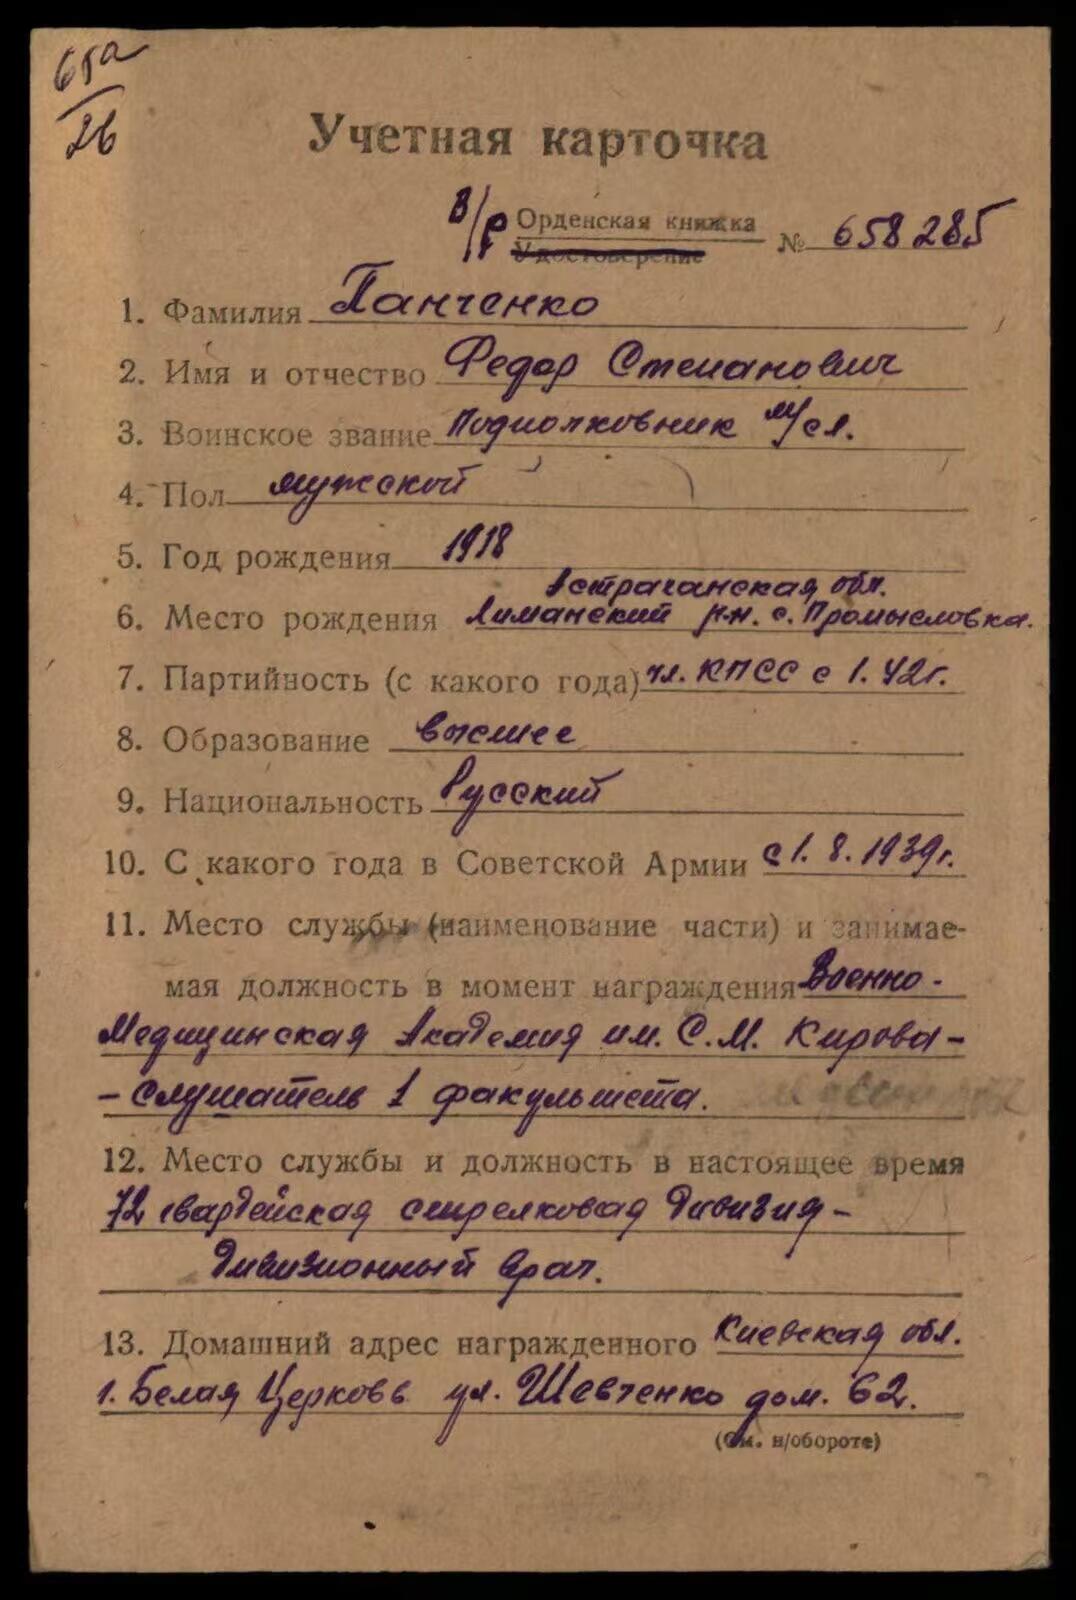 65а
26
Учетная карточка
В/р Орденская книжка № 658285
Удостоверение
1. Фамилия Панченко
2. Имя и отчество Федор Степанович
3. Воинское звание подполковник м/сл.
4. Пол мужской
5. Год рождения 1918
Астраханская обл.
6. Место рождения Лиманский р-н. с. Промысловка.
7. Партийность (с какого года) чл. КПСС с 1.42г.
8. Образование высшее
9. Национальность Русский
10. С какого года в Советской Армии с 1.8.1939г.
11. Место службы (наименование части) и занимае-
мая должность в момент награждения Военно-
Медицинская Академия им. С.М. Кирова-
- слушатель 1 факультета.
12. Место службы и должность в настоящее время
72 гвардейская стрелковая дивизия -
дивизионный врач.
13. Домашний адрес награжденного Киевская обл.
г. Белая Церковь ул. Шевченко дом. 62.
(См. н/обороте)